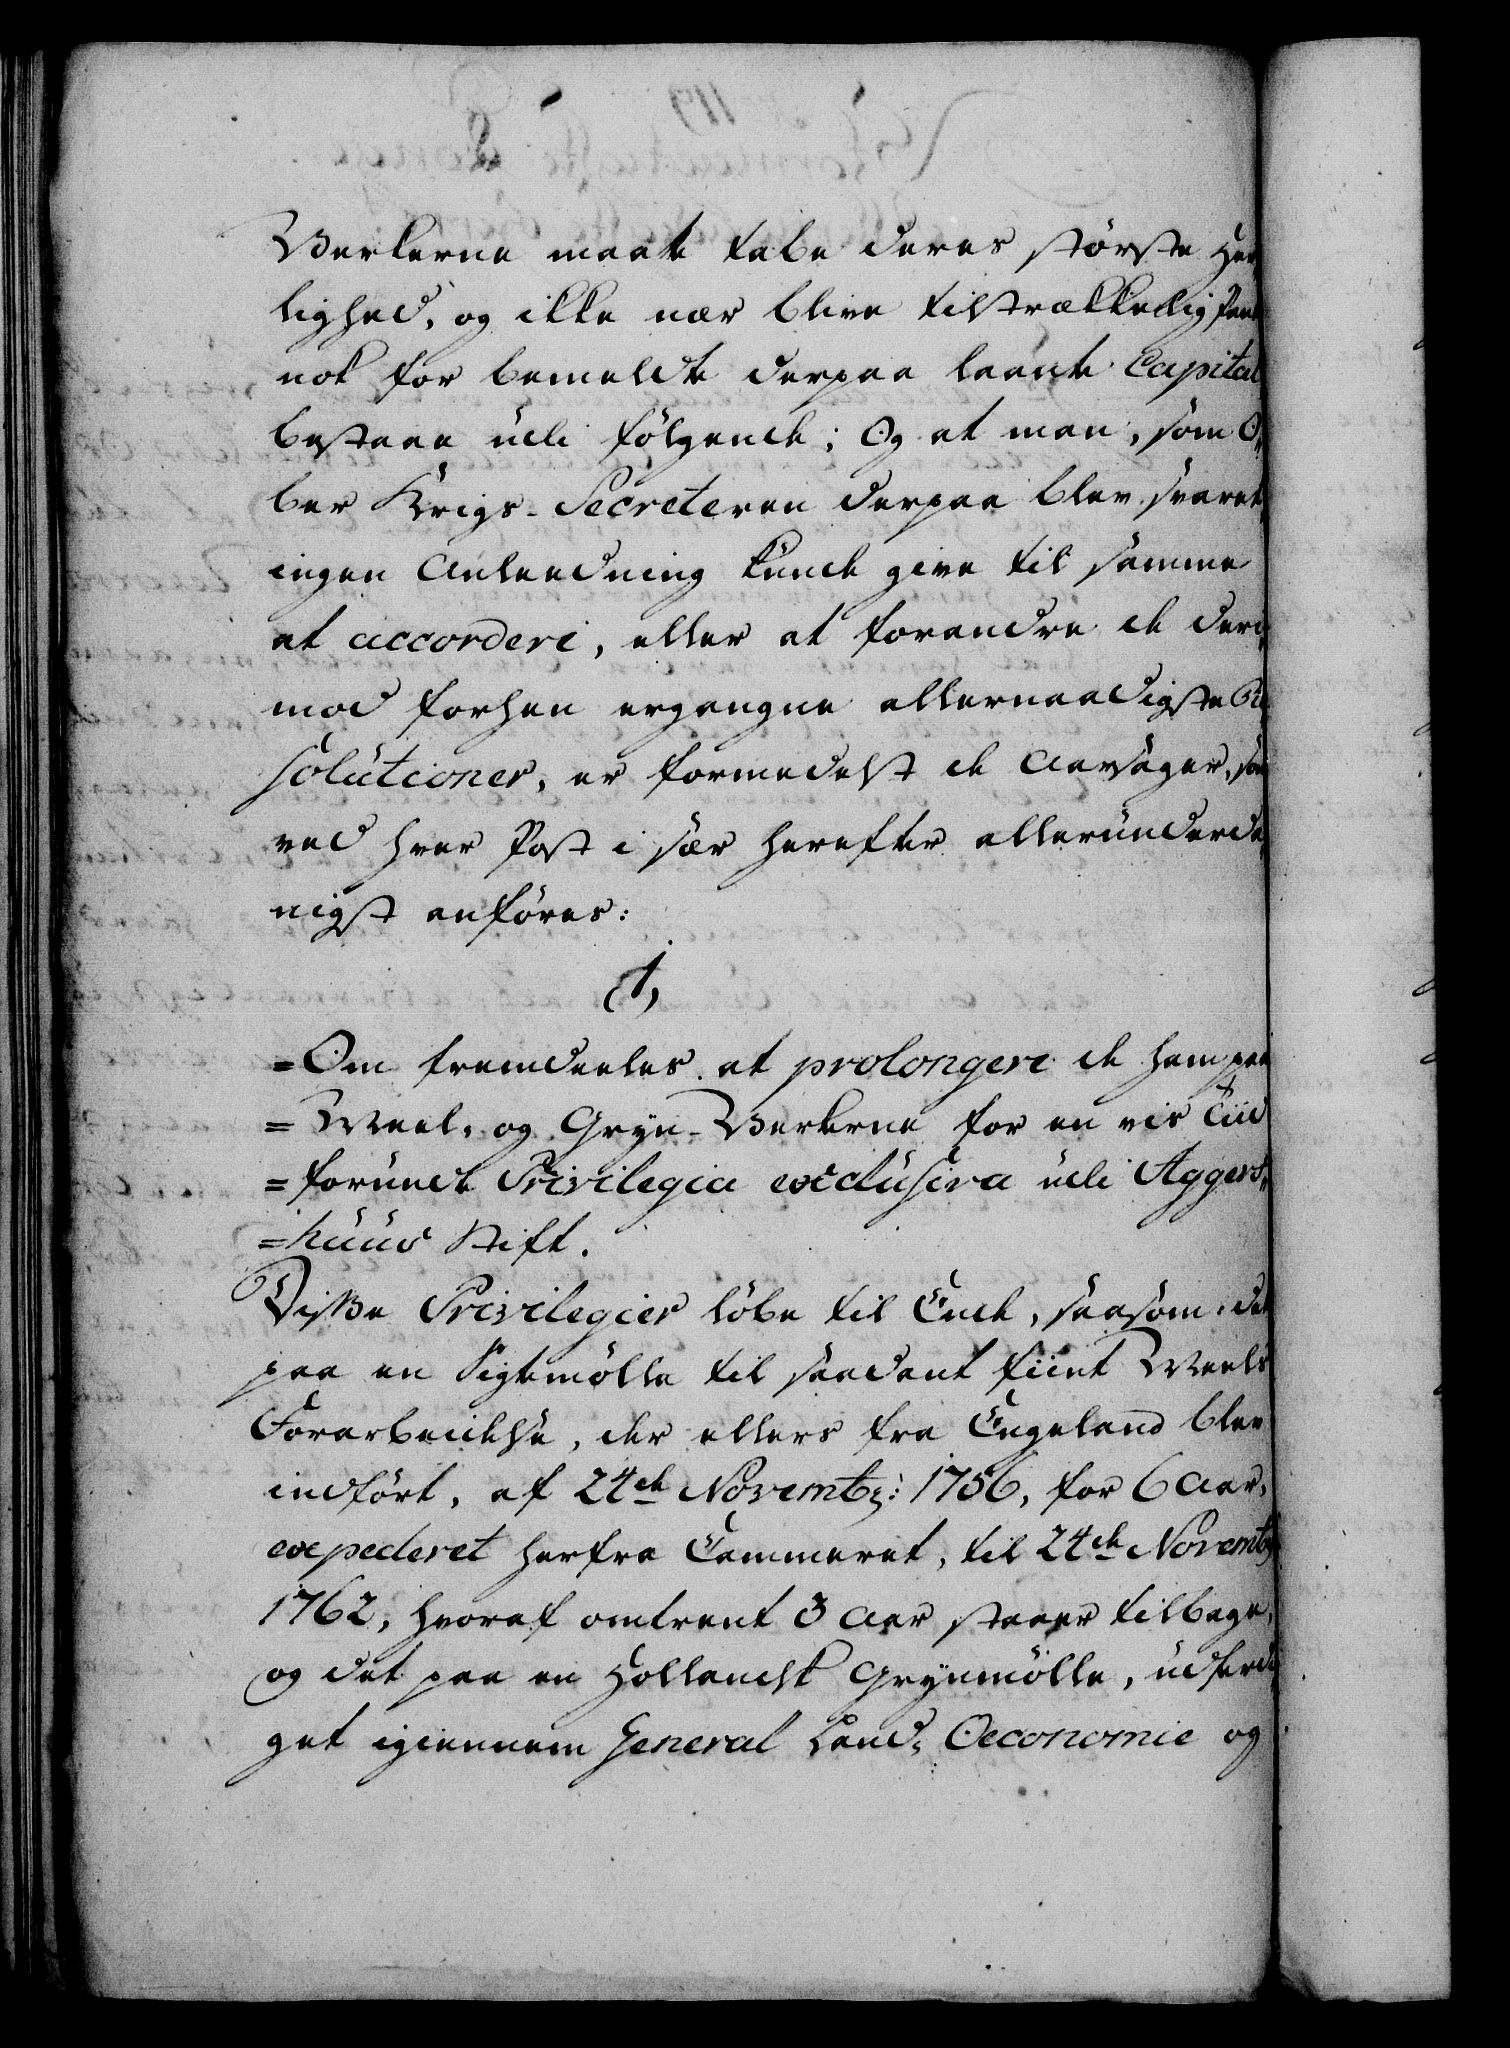 Verkerne maate tabe deres største Her
lighed, og ikke nær blive tilstrækkelig Pant
nok for bemeldte derpaa laante Capital
bestaaer udi følgende; Og at man, som O,,
ber Krigs-Secreteren derpaa blev svaret,
ingen Anleedning kunde give til samme
at accordere, eller at forandre de deri,,
mod forhen ergangne allernaadigste Re,,
solutioner, er formedelst de Aarsager, som
ved hver Post i sær herefter allerunderda,,
nigst anføres:
1,
=Om fremdeeles at prolongere de ham paa
=Meel- og Gryn-Verkerne for en vis Tiid
=forundte Privilegia exclusiva udi Aggers,,
=huus Stift.
Disse Privilegier løbe til Ende, saasom det
paa en Sigtemølle til saadant fiint Meels
Forarbeidelse, der ellers fra Engeland blev
indført, af 24de Novembr: 1756, for 6 Aar,
expederet herfra Cammeret, til 24de Novembr
1762, hvoraf omtrent 3 Aar staaer tilbage,
og det paa en Hollandsk Grynmølle, udferdi,,
get igiennem General Land-Oeconomie og